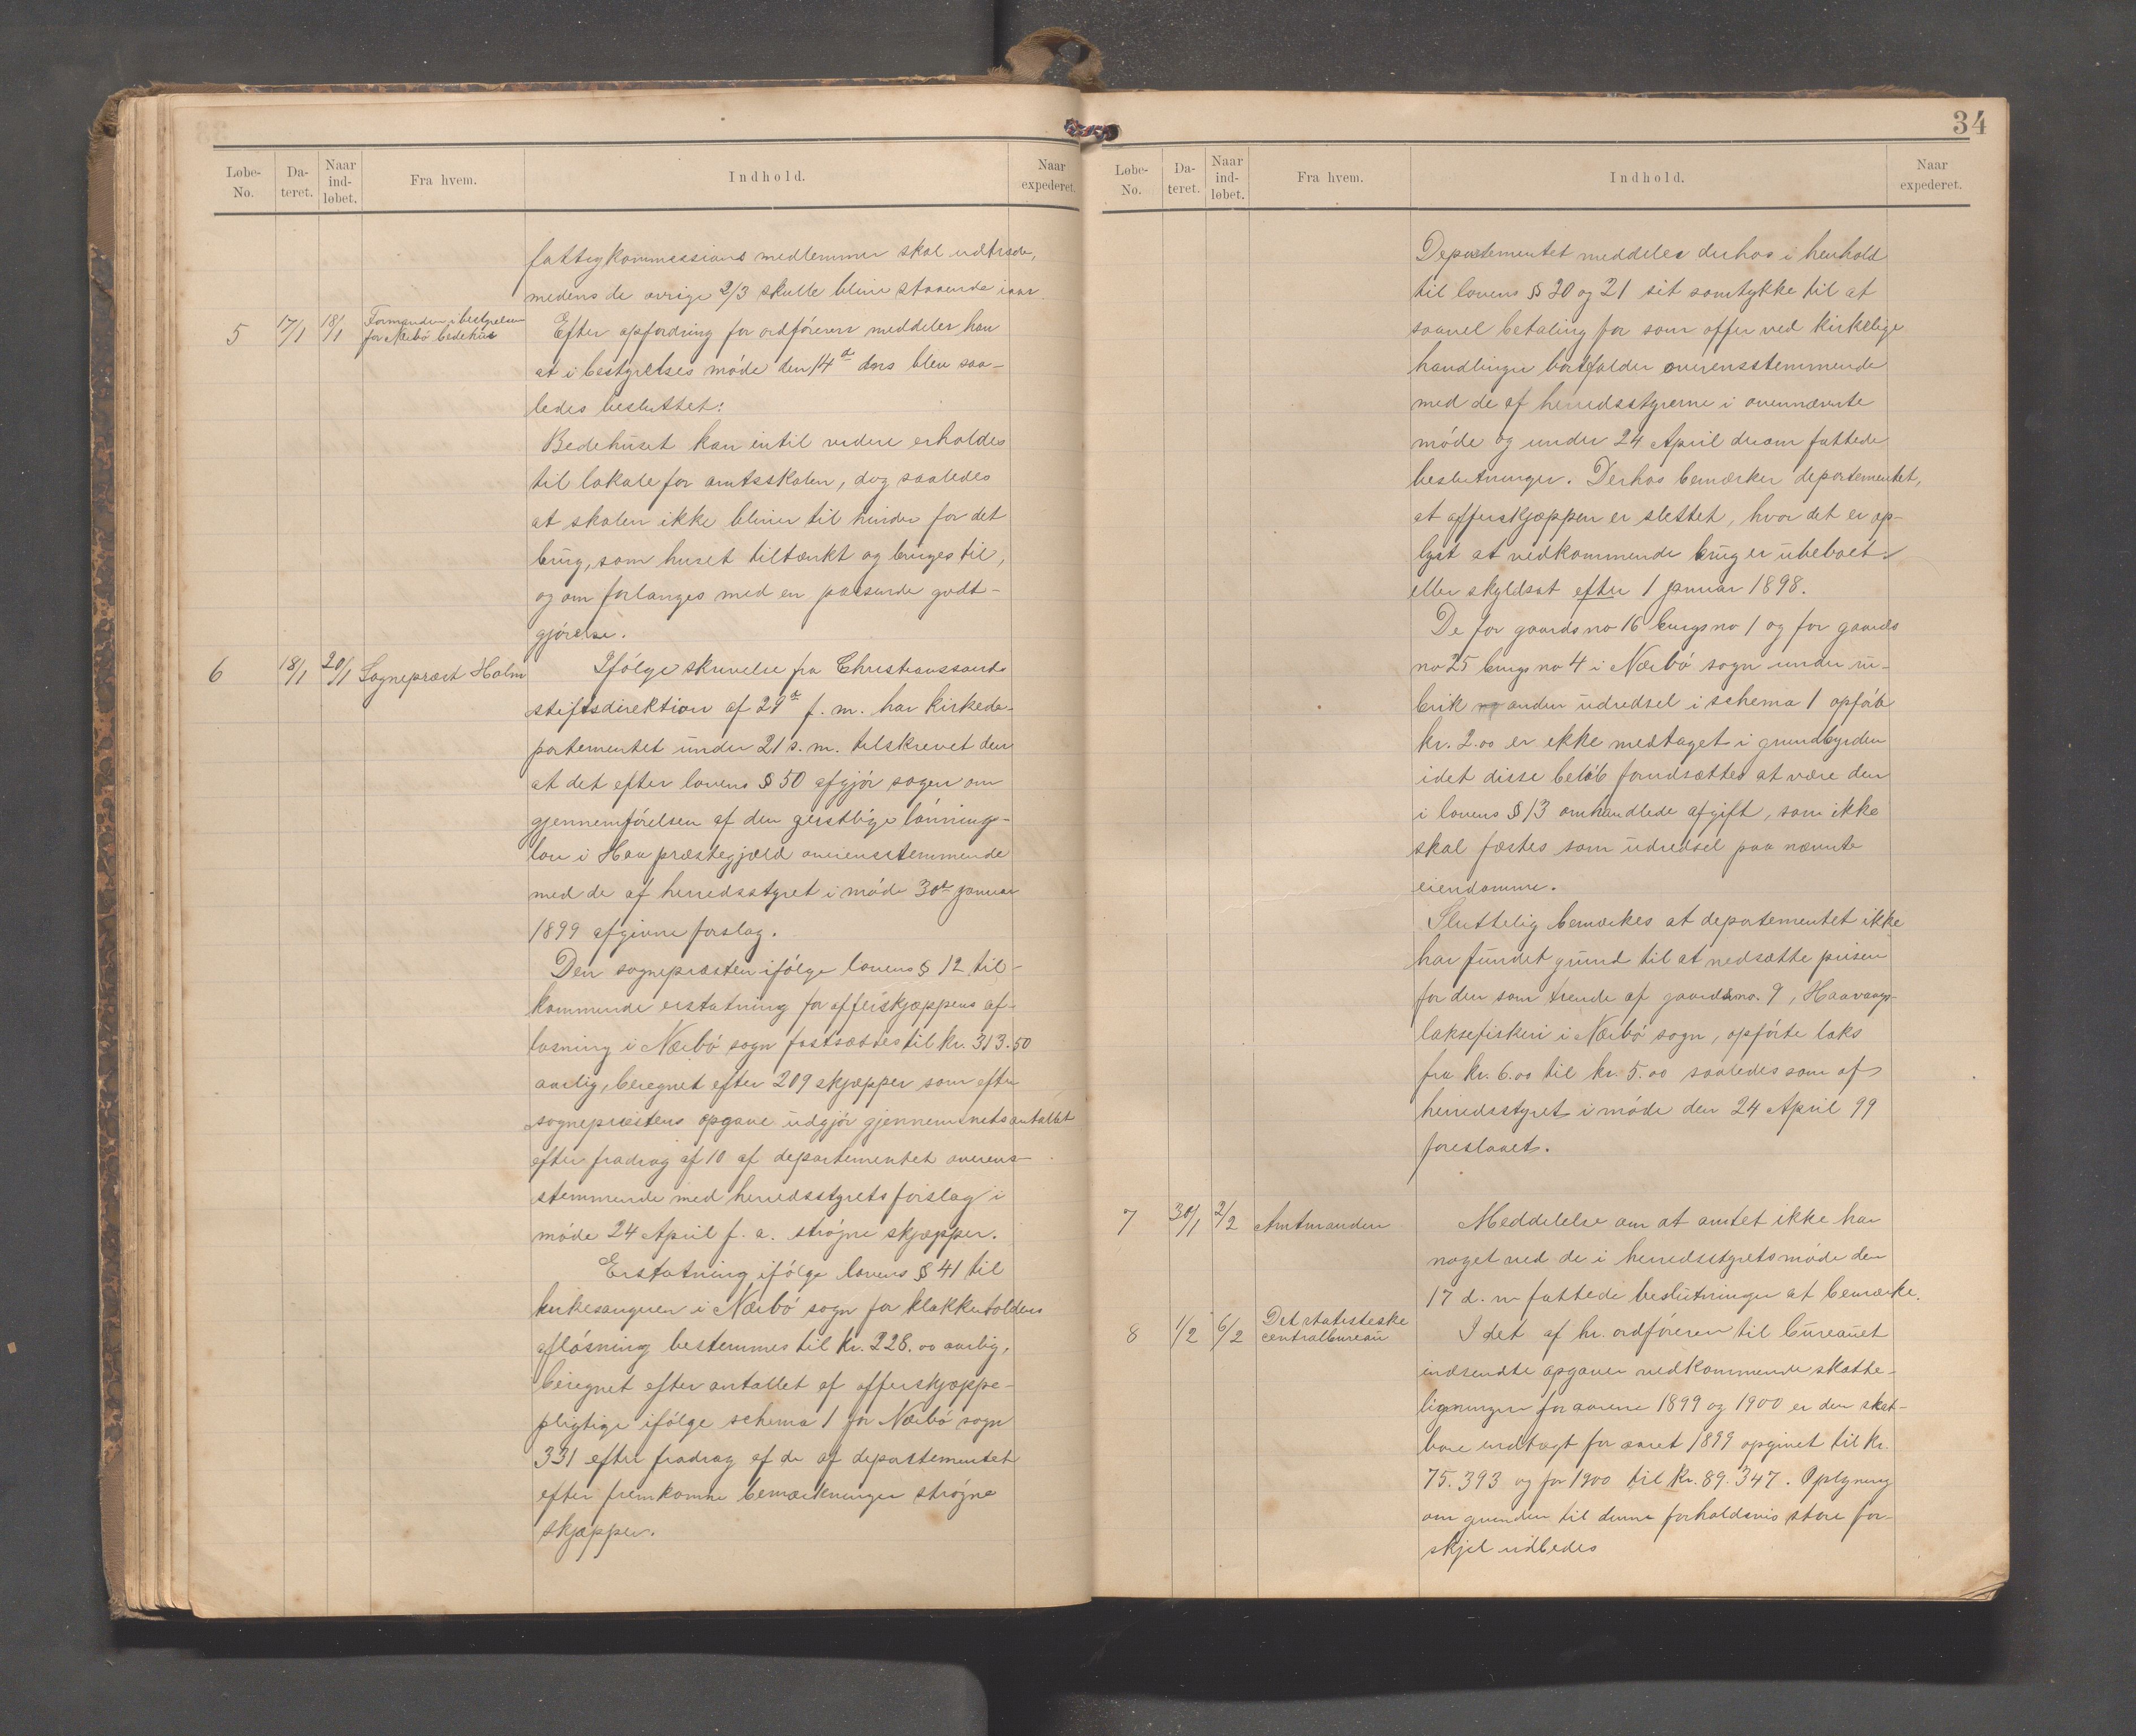 Løbe-No. Da-teret. Naar ind-løbet. Fra hvem. Indhold. Naar expederet.
fattigkommissions medlemmer skal udtræde,
medens de øvrige 2/3 skulle blive staaende iaar.
5 17/1 18/1 Formanden i bestyrelsen for Nærbö bedehus
Efter opfordring fra ordföreren meddeler han
at i bestyrelses möde den 14de ds blev saa-
ledes besluttet:
Bedehuset kan indtil videre erholdes
til lokale for amtsskolen, dog saaledes
at skolen ikke bliver til hinder for det
brug, som huset tiltænkt og bruges til,
og om forlanges med en passende godt-
gjörelse.
6 18/1 20/1 Sogneprest Holm
Ifölge skrivelse fra Christianssands
stiftsdirektion af 29de f. m. har kirkede-
partementet under 21 s. m. tilskrevet den
at det efter lovens § 50 afgjör sagen om
gjennemförelsen af den geistlige lönning-
lov i Haa præstegjæld overensstemmende
med de af herredsstyret i möde 30de januar
1899 afgivne forslag.
Den sognepræsten ifölge lovens § 12 til-
kommende erstatning for offerskjæppens af-
løsning i Nærbö sogn fastsættes til kr. 313.50
aarlig, beregnet efter 209 skjæpper som efter
sognepræstens opgave udgjör gjennemsnitsantallet
efter fradrag af 10 af departementet overens-
stemmende med herredsstyrets forslag i
möde 24 April f. a. strögne skjæpper.
Erstatning ifölge lovens § 41 til
kirkesangeren i Nærbö sogn for klokketoldens
aflösning bestemmes til kr. 228.00 aarlig,
beregnet efter antallet af offerskjæppe-
pligtige ifölge schema 1 for Nærbö sogn
331 efter fradrag af de af departementet
efter fremkomne bemærkninger strögne
skjæpper.
34
Løbe-No. Da-teret. Naar ind-løbet. Fra hvem. Indhold. Naar expederet.
Departementet meddeler derhos i henhold
til lovens §§ 20 og 21 sit samtykke til at
saavel betaling for som offer ved kirkelige
handlinger bortfalder overensstemmende
med de af herredsstyrerne i ovennævnte
möde og under 24 April derom fattede
beslutninger. Derhos bemærker departementet,
at offerskjæppen er slettet, hvor det er op-
lyst at vedkommende brug er ubeboet
eller skyldsat efter 1 januar 1898.
De for gaards no 16 brugs no 1 og for gaards
no 25 brugs no 4 i Nærbö sogn under ru-
brik anden udredsel i schema 1 opförte
kr. 2.00 er ikke medtaget i grundbyrden
idet disse belöb forudsættes at være den
i lovens § 13 omhandlede afgift, som ikke
skal fæstes som udredsel paa nævnte
eiendomme.
Sluttelig bemærkes at departementet ikke
har fundet grund til at nedsætte prisen
for den som tiende af gaards no. 9, Haavaags-
laksefiskeri i Nærbö sogn, opförte laks
fra kr. 6.00 til kr. 5.00 saaledes som af
herredsstyret i möde den 24 April 99
foreslaaet.
7 30/1 2/2 Amtmanden
Meddelelse om at amtet ikke har
noget ved de i herredsstyretsmöde den
17 d. m fattede beslutninger at bemærke.
8 1/2 6/2 Det statisteske centralbureau
I det af hr. ordföreren til bureauet
indsendte opgaver vedkommende skatte-
ligninger for aarene 1899 og 1900 er den skat-
bare indtægt for aaret 1899 opgivet til kr.
75.393 og for 1900 til kr. 89.347. Oplysning
om grunden til denne forholdsvis store for-
skjel udbedes